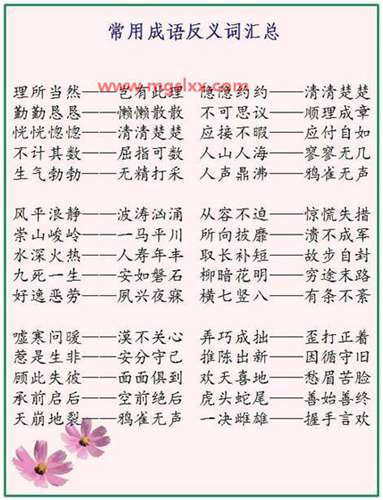 常用成语反义词汇总
理所当然——岂有此理 隐隐约约——清清楚楚
勤勤恳恳——懒懒散散 不可思议——顺理成章
恍恍惚惚——清清楚楚 应接不暇——应付自如
不计其数——屈指可数 人山人海——寥寥无几
生气勃勃——无精打采 人声鼎沸——鸦雀无声
风平浪静——波涛汹涌 从容不迫——惊慌失措
崇山峻岭——一马平川 所向披靡——溃不成军
水深火热——人寿年丰 取长补短——故步自封
九死一生——安如磐石 柳暗花明——穷途末路
好逸恶劳——夙兴夜寐 横七竖八——有条不紊
嘘寒问暖——漠不关心 弄巧成拙——歪打正着
惹是生非——安分守己 推陈出新——因循守旧
顾此失彼——面面俱到 欢天喜地——愁眉苦脸
承前启后——空前绝后 虎头蛇尾——善始善终
天崩地裂——鸦雀无声 一决雌雄——握手言欢